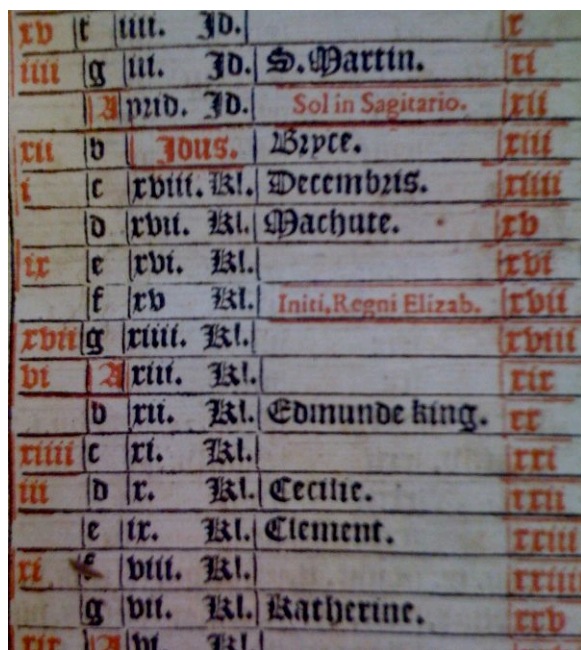 xv f iiii. Id. x
iiii g iii. Id. S. Martin. xi
A prid. Id. Sol in Sagitario. xii
xii b Idus. Bryce. xiii
i c xviii. Kl. Decembris. xiiii
d xvii. Kl. Machute. xv
ix e xvi. Kl. xvi
f xv Kl. Initi. Regni Elizab. xvii
xvii g xiiii. Kl. xviii
vi A xiii. Kl. xix
b xii. Kl. Edmunde king. xx
xiiii c xi. Kl. xxi
iii d x. Kl. Cecilie. xxii
e ix. Kl. Clement. xxiii
xi f viii. Kl. xxiiii
g vii. Kl. Katherine. xxv
xix A vi. Kl.